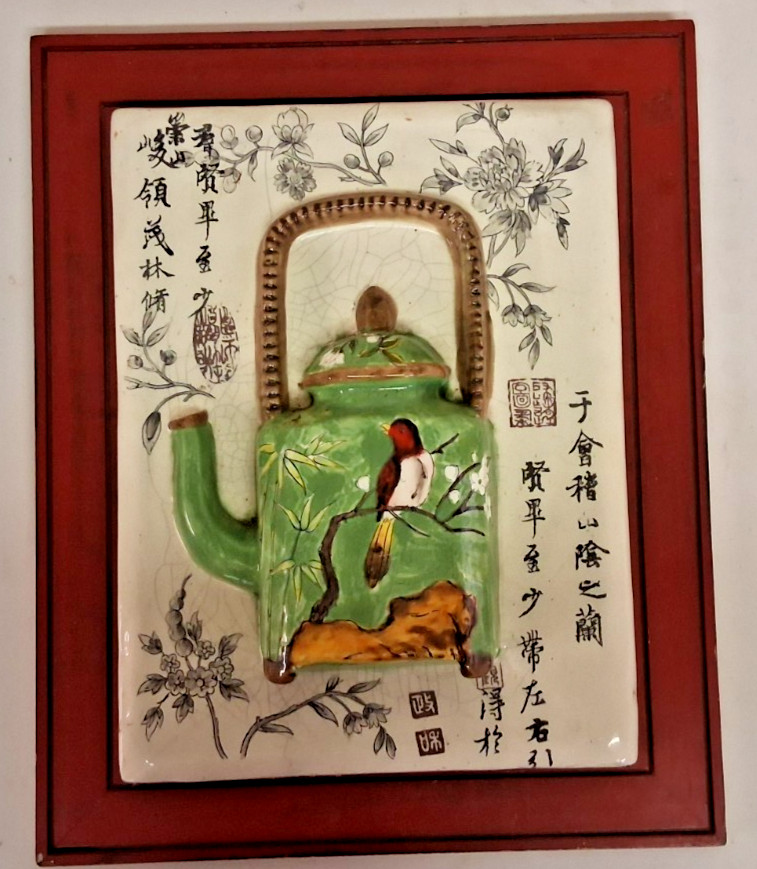 于會稽山陰之蘭
賢畢至少帶左右引
得於
群賢畢至少
崇山
峻領茂林脩
政和